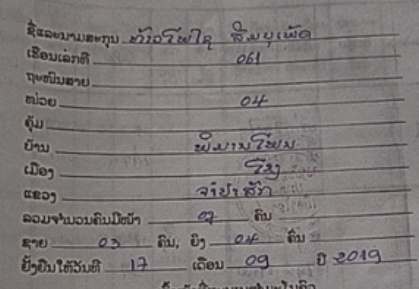 ຊື່ແລະນາມສະກຸນ ທ້າວ ໂພໄຊ ສີມບຸເພັດ
ເຮືອນເລກທີ 061
ຖະໜົນສາຍ
ໜ່ວຍ 04
ຄຸ້ມ
ບ້ານ ພິມານໂພນ
ເມືອງ ໂຂງ
ແຂວງ ຈຳປາສັກ
ລວມຈຳນວນຄົນມີໜ້າ 07 ຄົນ
ຊາຍ 03 ຄົນ, ຍິງ 04 ຄົນ
ຢັ້ງຢືນໃຫ້ວັນທີ 17 ເດືອນ 09 ປີ 2019